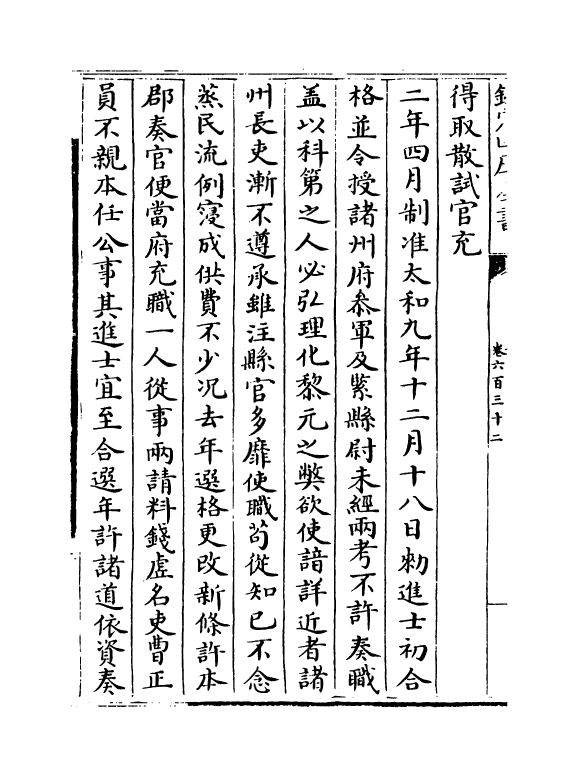 欽定四庫全書
卷六百三十二
得取散試官充
二年四月制准太和九年十二月十八日勅進士初合
格並令授諸州府叅軍及緊縣尉未經兩考不許奏職
盖以科第之人必弘理化黎元之弊欲使諳詳近者諸
州長吏漸不遵承雖注縣官多靡使職茍從知己不念
蒸民流例寖成供費不少况去年選格更改新條許本
郡奏官便當府充職一人從事兩請料錢虚名吏曹正
員不親本任公事其進士宜至合選年許諸道依資奏